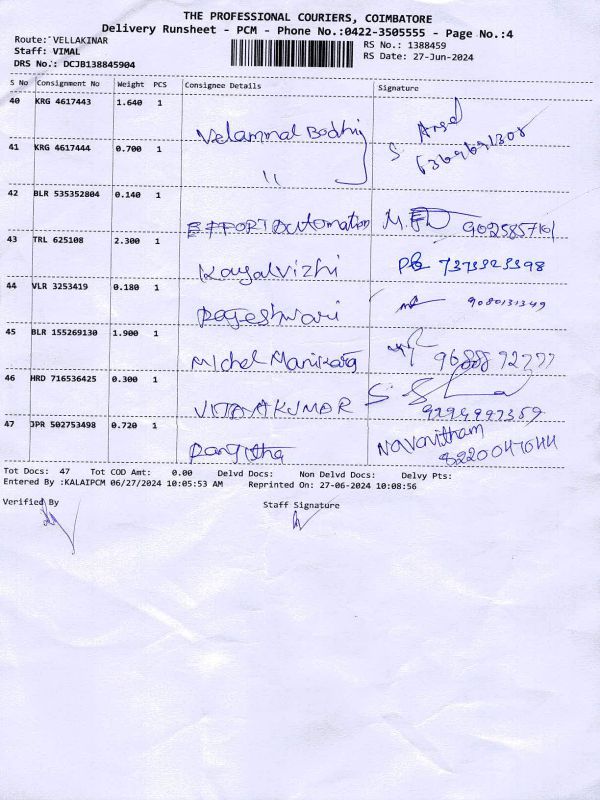 THE PROFESSIONAL COURIERS, COIMBATORE
Delivery Runsheet - PCM - Phone No.:0422-3505555 - Page No.:4
Route: VELLAKINAR
RS No.: 1388459
Staff: VIMAL
RS Date: 27-Jun-2024
DRS No.: DCJB138845904
S No Consignment No Weight PCS Consignee Details Signature
40 KRG 4617443 1.640 1
Velammal Bodhi
41 KRG 4617444 0.700 1
S 6369691308
"
42 BLR 535352804 0.140 1
EFFORT Automation 902585716
43 TRL 625108 2.300 1
Kayalvizhi 7373323398
44 VLR 3253419 0.180 1
Rageshwari 9080131349
45 BLR 155269130 1.900 1
Michel
46 HRD 716536425 0.300 1
VIJAYAKUMAR
47 JPR 502753498 0.720 1
Navanitham
Rangitha 8220047044
Tot Docs: 47 Tot COD Amt: 0.00 Delvd Docs: Non Delvd Docs: Delvy Pts:
Entered By :KALAIPCM 06/27/2024 10:05:53 AM Reprinted On: 27-06-2024 10:08:56
Verified By Staff Signature